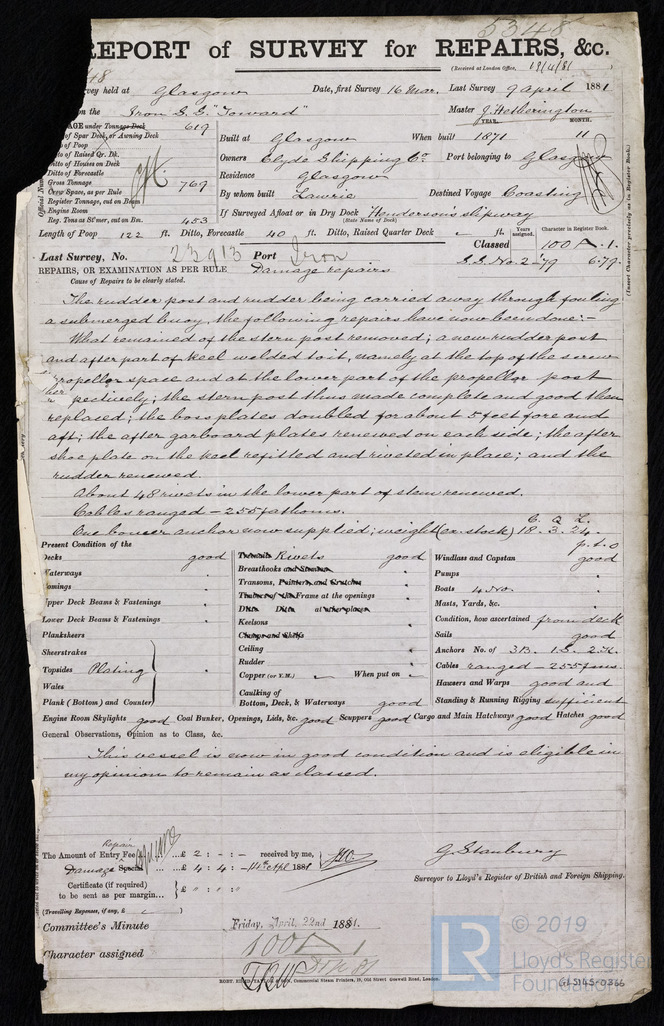 5348
REPORT of SURVEY for REPAIRS, &c.
(Received at London Office, 19/4/81
vey held at Glasgow Date, first Survey 16 Mar. Last Survey 9 April 1881
on the Iron S.S. "Toward" Master J. Hetherington
YEAR. MONTH.
AGE under Tonnage Deck 619
of Spar Deck, or Awning Deck Built at Glasgow When built 1871 11
of Poop
to of Raised Qr. Dk. Owners Clyde Shipping Co. Port belonging to Glasgow
to of Houses on Deck
Ditto of Forecastle Residence Glasgow
Gross Tonnage 769
Crew Space, as per Rule By whom built Lawrie Destined Voyage Coasting
Register Tonnage, cut on Beam
Engine Room If Surveyed Afloat or in Dry Dock Henderson's slipway
(State Name of Dock)
Reg. Tons as Stmer, cut on Bn. 453
Length of Poop 122 ft. Ditto, Forecastle 40 ft. Ditto, Raised Quarter Deck ft. Years assigned. Character in Register Book.
Classed 100 A. 1.
Last Survey, No. 23913 Port Iron S.S. No. 2-79 6.79.
REPAIRS, OR EXAMINATION AS PER RULE Damage repairs
Cause of Repairs to be clearly stated.
The rudder post and rudder being carried away through fouling
a submerged buoy, the following repairs have now been done:-
What remained of the stern post removed; a new rudder post
and after part of keel welded to it, namely at the top of the screw
propellor space and at the lower part of the propellor post
pectively; the stern post thus made complete and good then
replaced; the boss plates doubled for about 5 feet fore and
aft; the after garboard plates renewed on each side; the after
shoe plate on the keel refitted and riveted in place; and the
rudder renewed.
About 48 rivets in the lower part of stem renewed.
Cables ranged - 255 fathoms.
C. Q. L.
One bower anchor now supplied; weight (ex. stock) 18. 3. 24.
p.t.o
Present Condition of the
Decks good
Waterways "
omings "
Upper Deck Beams & Fastenings "
Lower Deck Beams & Fastenings "
Planksheers
Sheerstrakes
Topsides Plating "
Wales
Plank (Bottom) and Counter
Treenails Rivets good
Breasthooks and Stemson "
Transoms, Pointers and Crutches "
Timbers of the Frame at the openings "
Ditto Ditto at other places "
Keelsons "
Clamps and Shelfs
Ceiling "
Rudder "
Copper (or Y.M.) When put on
Caulking of
Bottom, Deck, & Waterways good
Windlass and Capstan good
Pumps "
Boats 4 No. "
Masts, Yards, &c. "
Condition, how ascertained from deck
Sails good
Anchors No. of 3B. 1.S. 2.K.
Cables ranged - 255 fms.
Hawsers and Warps good and
Standing & Running Rigging sufficient
Engine Room Skylights good Coal Bunker, Openings, Lids, &c. good Scuppers good Cargo and Main Hatchways good Hatches good
General Observations, Opinion as to Class, &c.
This vessel is now in good condition and is eligible in
my opinion to remain as classed.
Repair
The Amount of Entry Fee £ 2 : - : - received by me,
Damage Special £ 4 : 4 : - 14th Apl 1881
Certificate (if required)
to be sent as per margin £ " " "
(Travelling Expenses, if any, £
G. Stanbury
Surveyor to Lloyd's Register of British and Foreign Shipping.
Committee's Minute Friday, April, 22nd 1881.
Character assigned 100 A 1
© 2019
LR
Lloyd's Register
Foundation
(Insert Character precisely as in Register Book.)